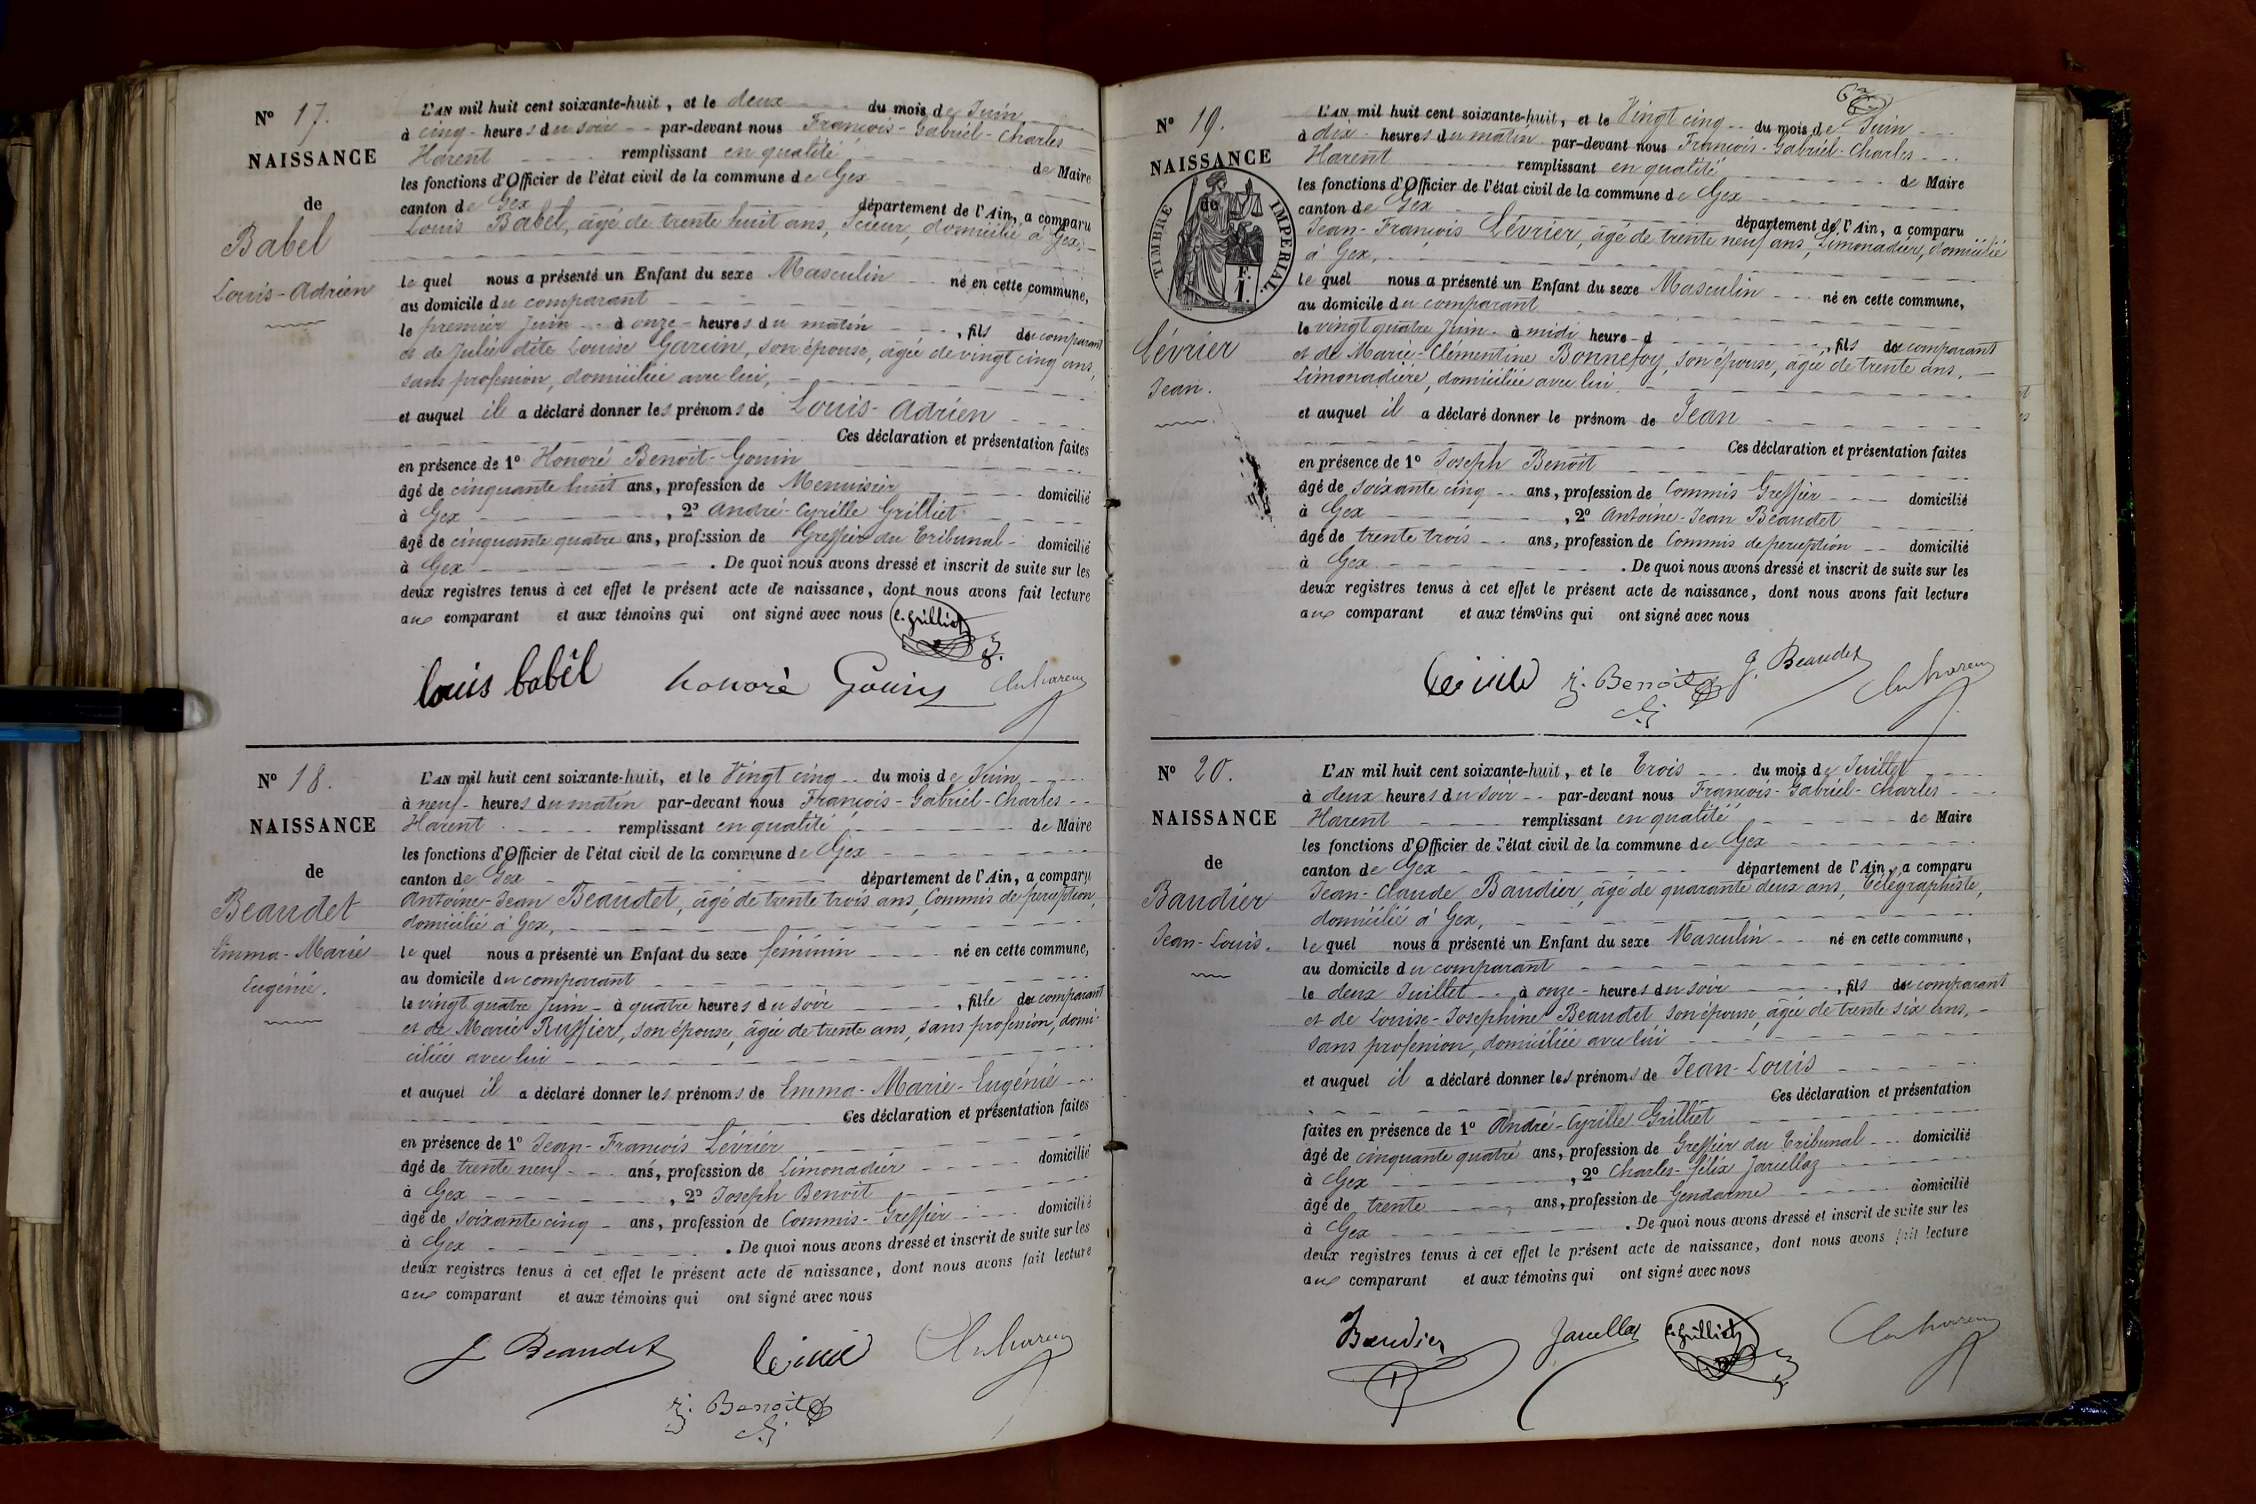 N° 17.
NAISSANCE
de
Babel
Louis-Adrien
L'AN mil huit cent soixante-huit, et le deux du mois de Juin
à cinq heures du soir par-devant nous François-Gabriel-Charles
Harent remplissant en qualité de Maire
les fonctions d'Officier de l'état civil de la commune de Gex
canton de Gex département de l'Ain, a comparu
Louis Babel, âgé de trente huit ans, Scieur, domicilié à Gex,
le quel nous a présenté un Enfant du sexe Masculin né en cette commune,
au domicile du comparant
le premier Juin à onze heures du matin, fils du comparant
et de Julie dite Louise Garcin, son épouse, âgée de vingt cinq ans,
sans profession, domiciliée avec lui,
et auquel il a déclaré donner les prénoms de Louis-Adrien
Ces déclaration et présentation faites
en présence de 1° Honoré Benoît-Gouin
âgé de cinquante huit ans, profession de Menuisier domicilié
à Gex, 2° André-Cyrille Grilliet
âgé de cinquante quatre ans, profession de Greffier du Tribunal domicilié
à Gex. De quoi nous avons dressé et inscrit de suite sur les
deux registres tenus à cet effet le présent acte de naissance, dont nous avons fait lecture
aux comparant et aux témoins qui ont signé avec nous
C. Grilliet
louis babêl honoré Gouin Ch. harent
N° 18.
NAISSANCE
de
Beaudet
Emma-Marie
Eugénie.
L'AN mil huit cent soixante-huit, et le Vingt cinq du mois de Juin
à neuf heures du matin par-devant nous François-Gabriel-Charles
Harent remplissant en qualité de Maire
les fonctions d'Officier de l'état civil de la commune de Gex
canton de Gex département de l'Ain, a comparu
Antoine-Jean Beaudet, âgé de trente trois ans, Commis de perception,
domicilié à Gex,
le quel nous a présenté un Enfant du sexe féminin né en cette commune,
au domicile du comparant
le vingt quatre Juin à quatre heures du soir, fille du comparant
et de Marie Ruffier, son épouse, âgée de trente ans, sans profession, domi-
ciliée avec lui
et auquel il a déclaré donner les prénoms de Emma-Marie-Eugénie
Ces déclaration et présentation faites
en présence de 1° Jean-François Lévrier
âgé de trente neuf ans, profession de Limonadier domicilié
à Gex, 2° Joseph Benoît
âgé de soixante cinq ans, profession de Commis-Greffier domicilié
à Gex. De quoi nous avons dressé et inscrit de suite sur les
deux registres tenus à cet effet le présent acte de naissance, dont nous avons fait lecture
aux comparant et aux témoins qui ont signé avec nous
J Beaudet Ch. harent
j. Benoit
N° 19.
NAISSANCE
de
TIMBRE IMPERIAL.
Lévrier
Jean.
L'AN mil huit cent soixante-huit, et le Vingt cinq du mois de Juin
à dix heures du matin par-devant nous François-Gabriel-Charles
Harent remplissant en qualité de Maire
les fonctions d'Officier de l'état civil de la commune de Gex
canton de Gex département de l'Ain, a comparu
Jean-François Lévrier, âgé de trente neuf ans, Limonadier, domicilié
à Gex,
le quel nous a présenté un Enfant du sexe Masculin né en cette commune,
au domicile du comparant
le vingt quatre Juin à midi heure d, fils du comparant
et de Marie-Clémentine Bonnefoy, son épouse, âgée de trente ans,
Limonadière, domiciliée avec lui
et auquel il a déclaré donner le prénom de Jean
Ces déclaration et présentation faites
en présence de 1° Joseph Benoît
âgé de soixante cinq ans, profession de Commis Greffier domicilié
à Gex, 2° Antoine-Jean Beaudet
âgé de trente trois ans, profession de Commis de perception domicilié
à Gex. De quoi nous avons dressé et inscrit de suite sur les
deux registres tenus à cet effet le présent acte de naissance, dont nous avons fait lecture
aux comparant et aux témoins qui ont signé avec nous
j. Benoit J. Beaudet Ch. harent
N° 20.
NAISSANCE
de
Baudier
Jean-Louis.
L'AN mil huit cent soixante-huit, et le Trois du mois de Juillet
à deux heures du soir par-devant nous François-Gabriel-Charles
Harent remplissant en qualité de Maire
les fonctions d'Officier de l'état civil de la commune de Gex
canton de Gex département de l'Ain, a comparu
Jean-Claude Baudier, âgé de quarante deux ans, Télégraphiste,
domicilié à Gex,
le quel nous a présenté un Enfant du sexe Masculin né en cette commune,
au domicile du comparant
le deux Juillet à onze heures du soir, fils du comparant
et de Louise-Josephine Beaudet son épouse, âgée de trente six ans,
sans profession, domiciliée avec lui
et auquel il a déclaré donner les prénoms de Jean-Louis
Ces déclaration et présentation
faites en présence de 1° André-Cyrille Grilliet
âgé de cinquante quatre ans, profession de Greffier du Tribunal domicilié
à Gex, 2° Charles-Félix Jarcellaz
âgé de trente ans, profession de Gendarme domicilié
à Gex. De quoi nous avons dressé et inscrit de suite sur les
deux registres tenus à cet effet le présent acte de naissance, dont nous avons fait lecture
aux comparant et aux témoins qui ont signé avec nous
Baudier C. Grilliet Ch. harent